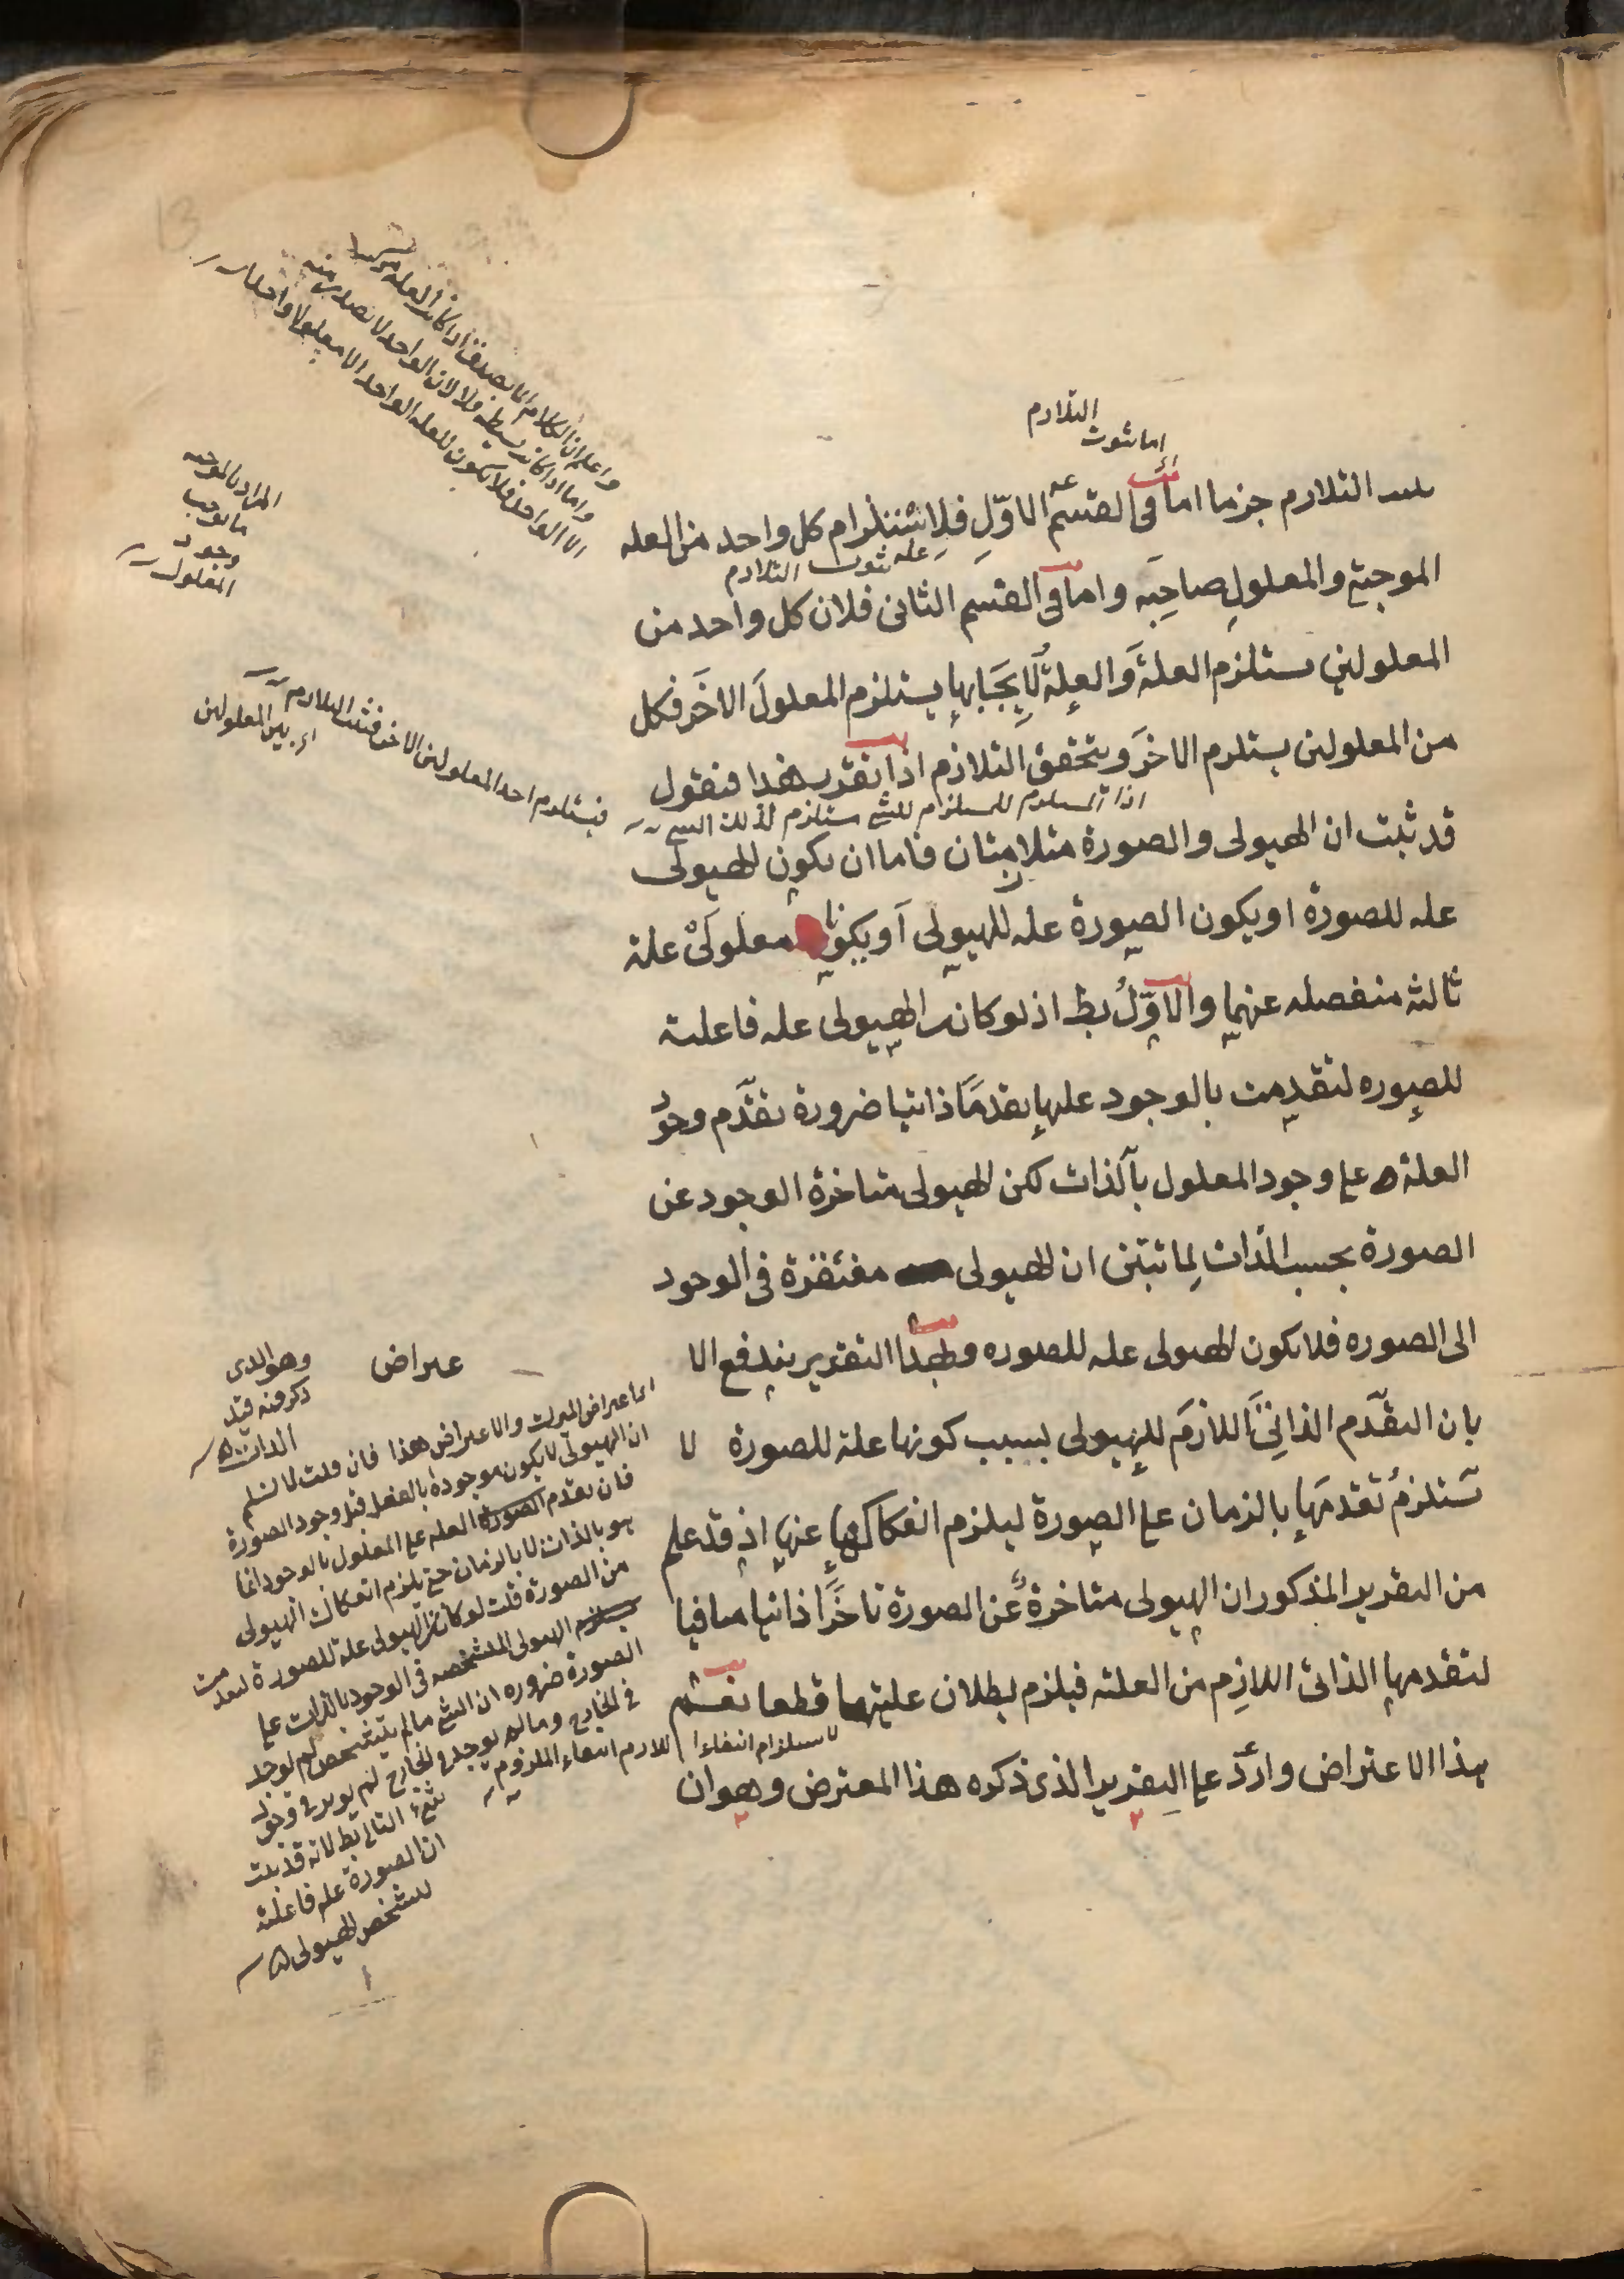 اما ثبوت التلازم
التلازم جزما اما فى القسم الاوّل فلاستلزام كل واحد من العله
علة ثبوت التلازم
الموجبة والمعلول صاحبَه واما فى القسم الثانى فلان كل واحد من
المعلولين يستلزم العلةَ والعلةُ لايجابها يستلزم المعلولَ الاخَر فكل
من المعلولين يستلزم الاخَر ويتحقق التلازم اذا تقرر هذا فنقول
قد ثبت ان الهيولى والصورة متلازمتان فاما ان يكون الهيولى
عله للصورة او يكون الصورة عله للهيولى او يكونا معلولَىْ علة
ثالثه منفصله عنهما والاوّلُ بط اذ لو كانت الهيولى عله فاعلية
للصوره لتقدمت بالوجود عليها تقدمًا ذاتيا ضرورة تقدّم وجود
العلة على وجود المعلول بالذات لكن الهيولى متاخرة الوجود عن
الصورة بحسب الذات لما تبيّن ان الهيولى مفتقرة فى الوجود
الى الصوره فلا يكون الهيولى عله للصوره وبهذا التقرير يندفع الا
عتراض
بان التقدّم الذاتىَّ اللازمَ للهيولى بسبب كونها علة للصورة لا
تستلزمُ تقدمَها بالزمان على الصورة ليلزم انفكاكها عنها اذ قد علم
من التقرير المذكور ان الهيولى متاخرةٌ عن الصورة تاخّرًا ذاتيا منافيا
لتقدمها الذاتى اللازِم من العلية فيلزم بطلان عليتها قطعا نعم
لاستلزام انتفاء اللازم انتفاء الملزوم
هذا الاعتراض واردٌ على التقرير الذى ذكره هذا المعترض وهو ان
واعلم ان الكلام انما يصدق اذا كانت العله مركبة
واما اذا كانت بسيطة فلا لان الواحد لا يصدر منه
الا الواحد فلا يكون للعله الواحد الا معلولا واحدا
المراد بالموجبه
ما يوجب
وجود
المعلول
فيستلزم احد المعلولين الاخر فثبت التلازم
اى بين المعلولين
وهو الذى
ذكر فيه قيد
الذات
فان قلت لا نسلم
ان الهيولى لا يكون موجودة بالفعل قبل وجود الصورة
فان تقدم العله على المعلول بالوجود انما
هو بالذات لا بالزمان حتى يلزم انفكاك الهيولى
من الصورة قلت لو كانت الهيولى علة للصورة لتقدمت
الهيولى المتشخصه فى الوجود بالذات على
الصورة ضروره ان الشئ ما لم يتشخص لم يوجد
فى الخارج وما لم يوجد فى الخارج لم يوثر فى وجود
شئ التالى بط لانه قد ثبت
ان الصورة عله فاعلية
لتشخص الهيولى